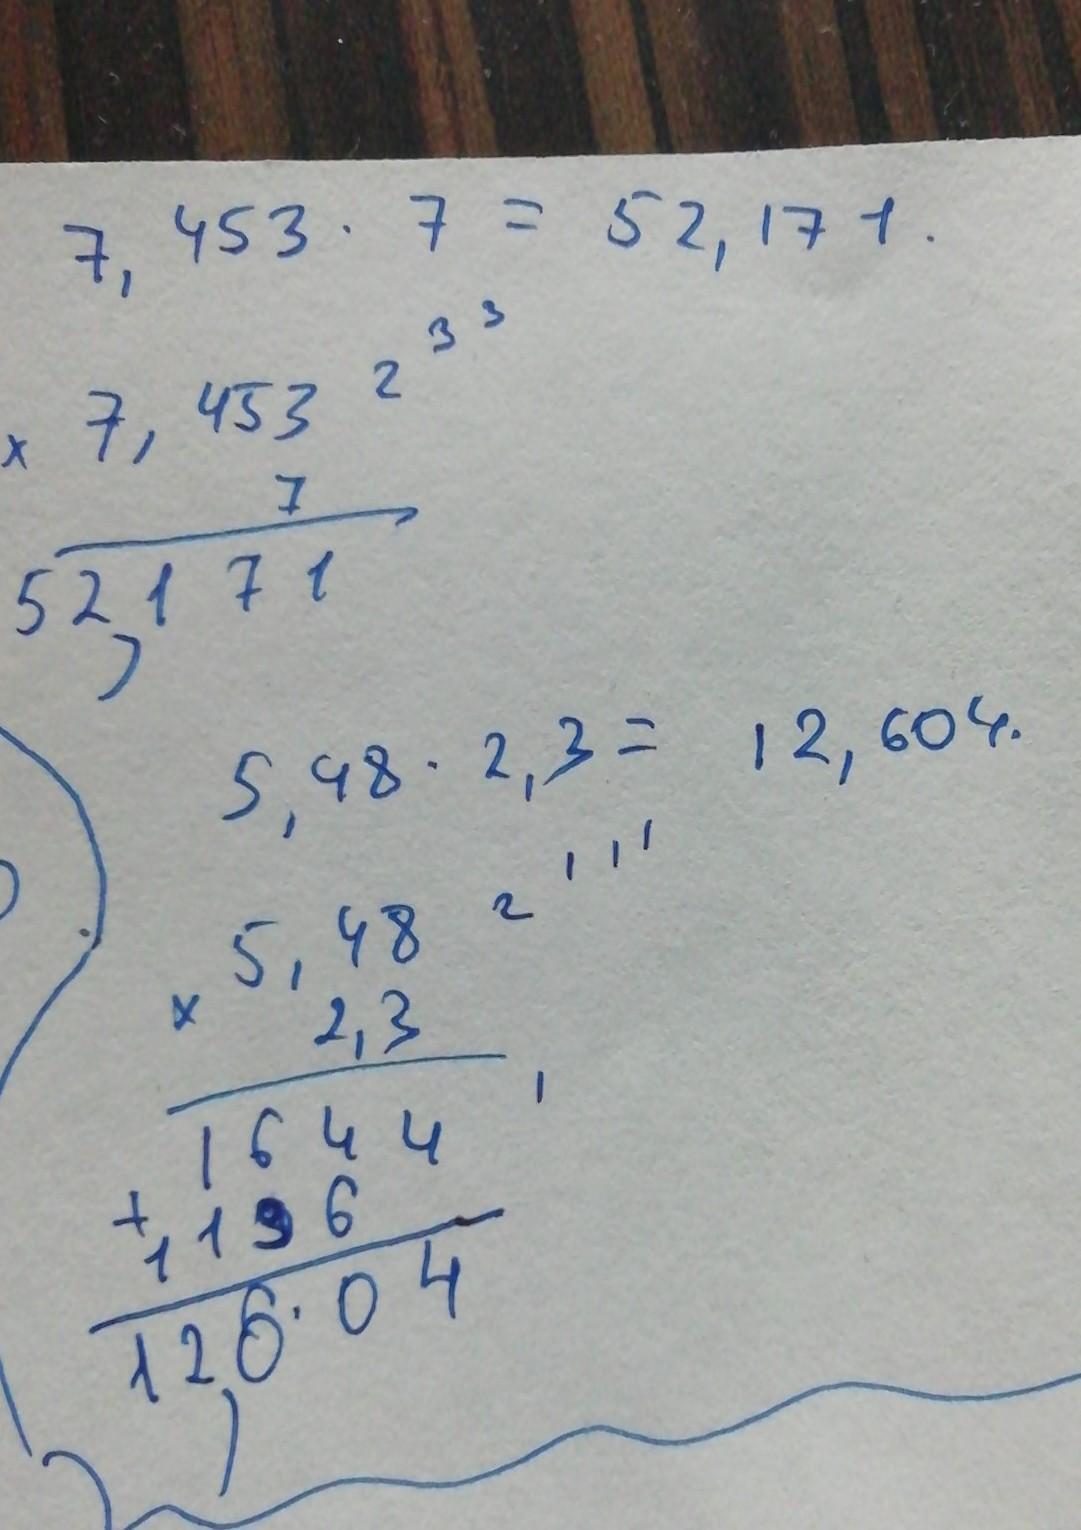 7,453 · 7 = 52,171.
2 3 3
× 7,453
7
52,171
5,48 · 2,3 = 12,604.
2 1 1 1
5,48
× 2,3
1
1644
+ 1196
12,6·04